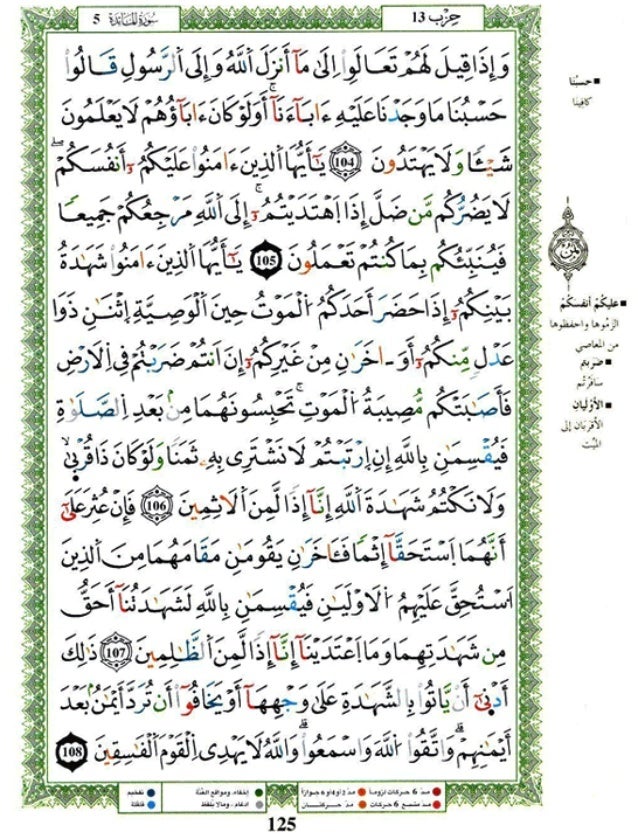 حِزْبُ 13
سُورَةُ المَائِدَة 5
وَإِذَا قِيلَ لَهُمْ تَعَالَوِاْ اِلَىٰ مَآ أَنزَلَ اَللَّهُ وَإِلَى اَلرَّسُولِ قَالُواْ
حَسْبُنَا مَا وَجَدْنَا عَلَيْهِ ءَابَآءَنَآۖ أَوَلَوْ كَانَ ءَابَآؤُهُمْ لَا يَعْلَمُونَ
شَيْـٔاٗ وَلَا يَهْتَدُونَ 104 يَـٰٓأَيُّهَا اَلذِينَ ءَامَنُواْ عَلَيْكُمُۥٓ أَنفُسَكُمْۖ
لَا يَضُرُّكُم مَّن ضَلَّ إِذَا اَهْتَدَيْتُمُۥٓۖ إِلَى اَللَّهِ مَرْجِعُكُمْ جَمِيعاٗ
فَيُنَبِّئُكُم بِمَا كُنتُمْ تَعْمَلُونَ 105 يَـٰٓأَيُّهَا اَلذِينَ ءَامَنُواْ شَهَـٰدَةُ
بَيْنِكُمُۥٓ إِذَا حَضَرَ أَحَدَكُمُ اُلْمَوْتُ حِينَ اَلْوَصِيَّةِ اِثْنَـٰنِ ذَوَا
عَدْلٖ مِّنكُمُۥٓ أَوَ اٰخَرَٰنِ مِنْ غَيْرِكُمُۥٓ إِنَ اَنتُمْ ضَرَبْتُمْ فِي اِلَارْضِ
فَأَصَـٰبَتْكُم مُّصِيبَةُ اُلْمَوْتِۖ تَحْبِسُونَهُمَا مِنۢ بَعْدِ اِلصَّلَوٰةِ
فَيُقْسِمَـٰنِ بِاللَّهِ إِنِ اِرْتَبْتُمْ لَا نَشْتَرِي بِهِۦ ثَمَناٗ وَلَوْ كَانَ ذَا قُرْبۭىٰ
وَلَا نَكْتُمُ شَهَـٰدَةَ اَللَّهِ إِنَّآ إِذاٗ لَّمِنَ اَلَاثِمِينَ 106 فَإِنْ عُثِرَ عَلَىٰٓ
أَنَّهُمَا اَسْتَحَقَّآ إِثْماٗ فَـَٔاخَرَٰنِ يَقُومَـٰنِ مَقَامَهُمَا مِنَ اَلذِينَ
اَسْتُحِقَّ عَلَيْهِمُ اُلَاوْلَيَـٰنِ فَيُقْسِمَـٰنِ بِاللَّهِ لَشَهَـٰدَتُنَآ أَحَقُّ
مِن شَهَـٰدَتِهِمَا وَمَا اَعْتَدَيْنَآ إِنَّآ إِذاٗ لَّمِنَ اَلظَّـٰلِمِينَ 107 ذَٰلِكَ
أَدْنَىٰٓ أَنْ يَّاتُواْ بِالشَّهَـٰدَةِ عَلَىٰ وَجْهِهَآ أَوْ يَخَافُوٓاْ أَن تُرَدَّ أَيْمَـٰنُۢ بَعْدَ
أَيْمَـٰنِهِمْۖ وَاتَّقُواْ اُللَّهَ وَاسْمَعُواْۖ وَاللَّهُ لَا يَهْدِي اِلْقَوْمَ اَلْفَـٰسِقِينَ 108
حسبنا
كافينا
ثمن
عليكم أنفسكم
الزموها واحفظوها
من المعاصي
ضربتم
سافرتم
الأوليان
الأقربان إلى
الميت
مدّ 6 حركات لزوماً
مدّ 2 أو 4 أو 6 جوازاً
إخفاء، ومواقع الغنّة
تفخيم
مدّ مشبع 6 حركات
مدّ حركتان
إدغام، ومالا يلفظ
قلقلة
125